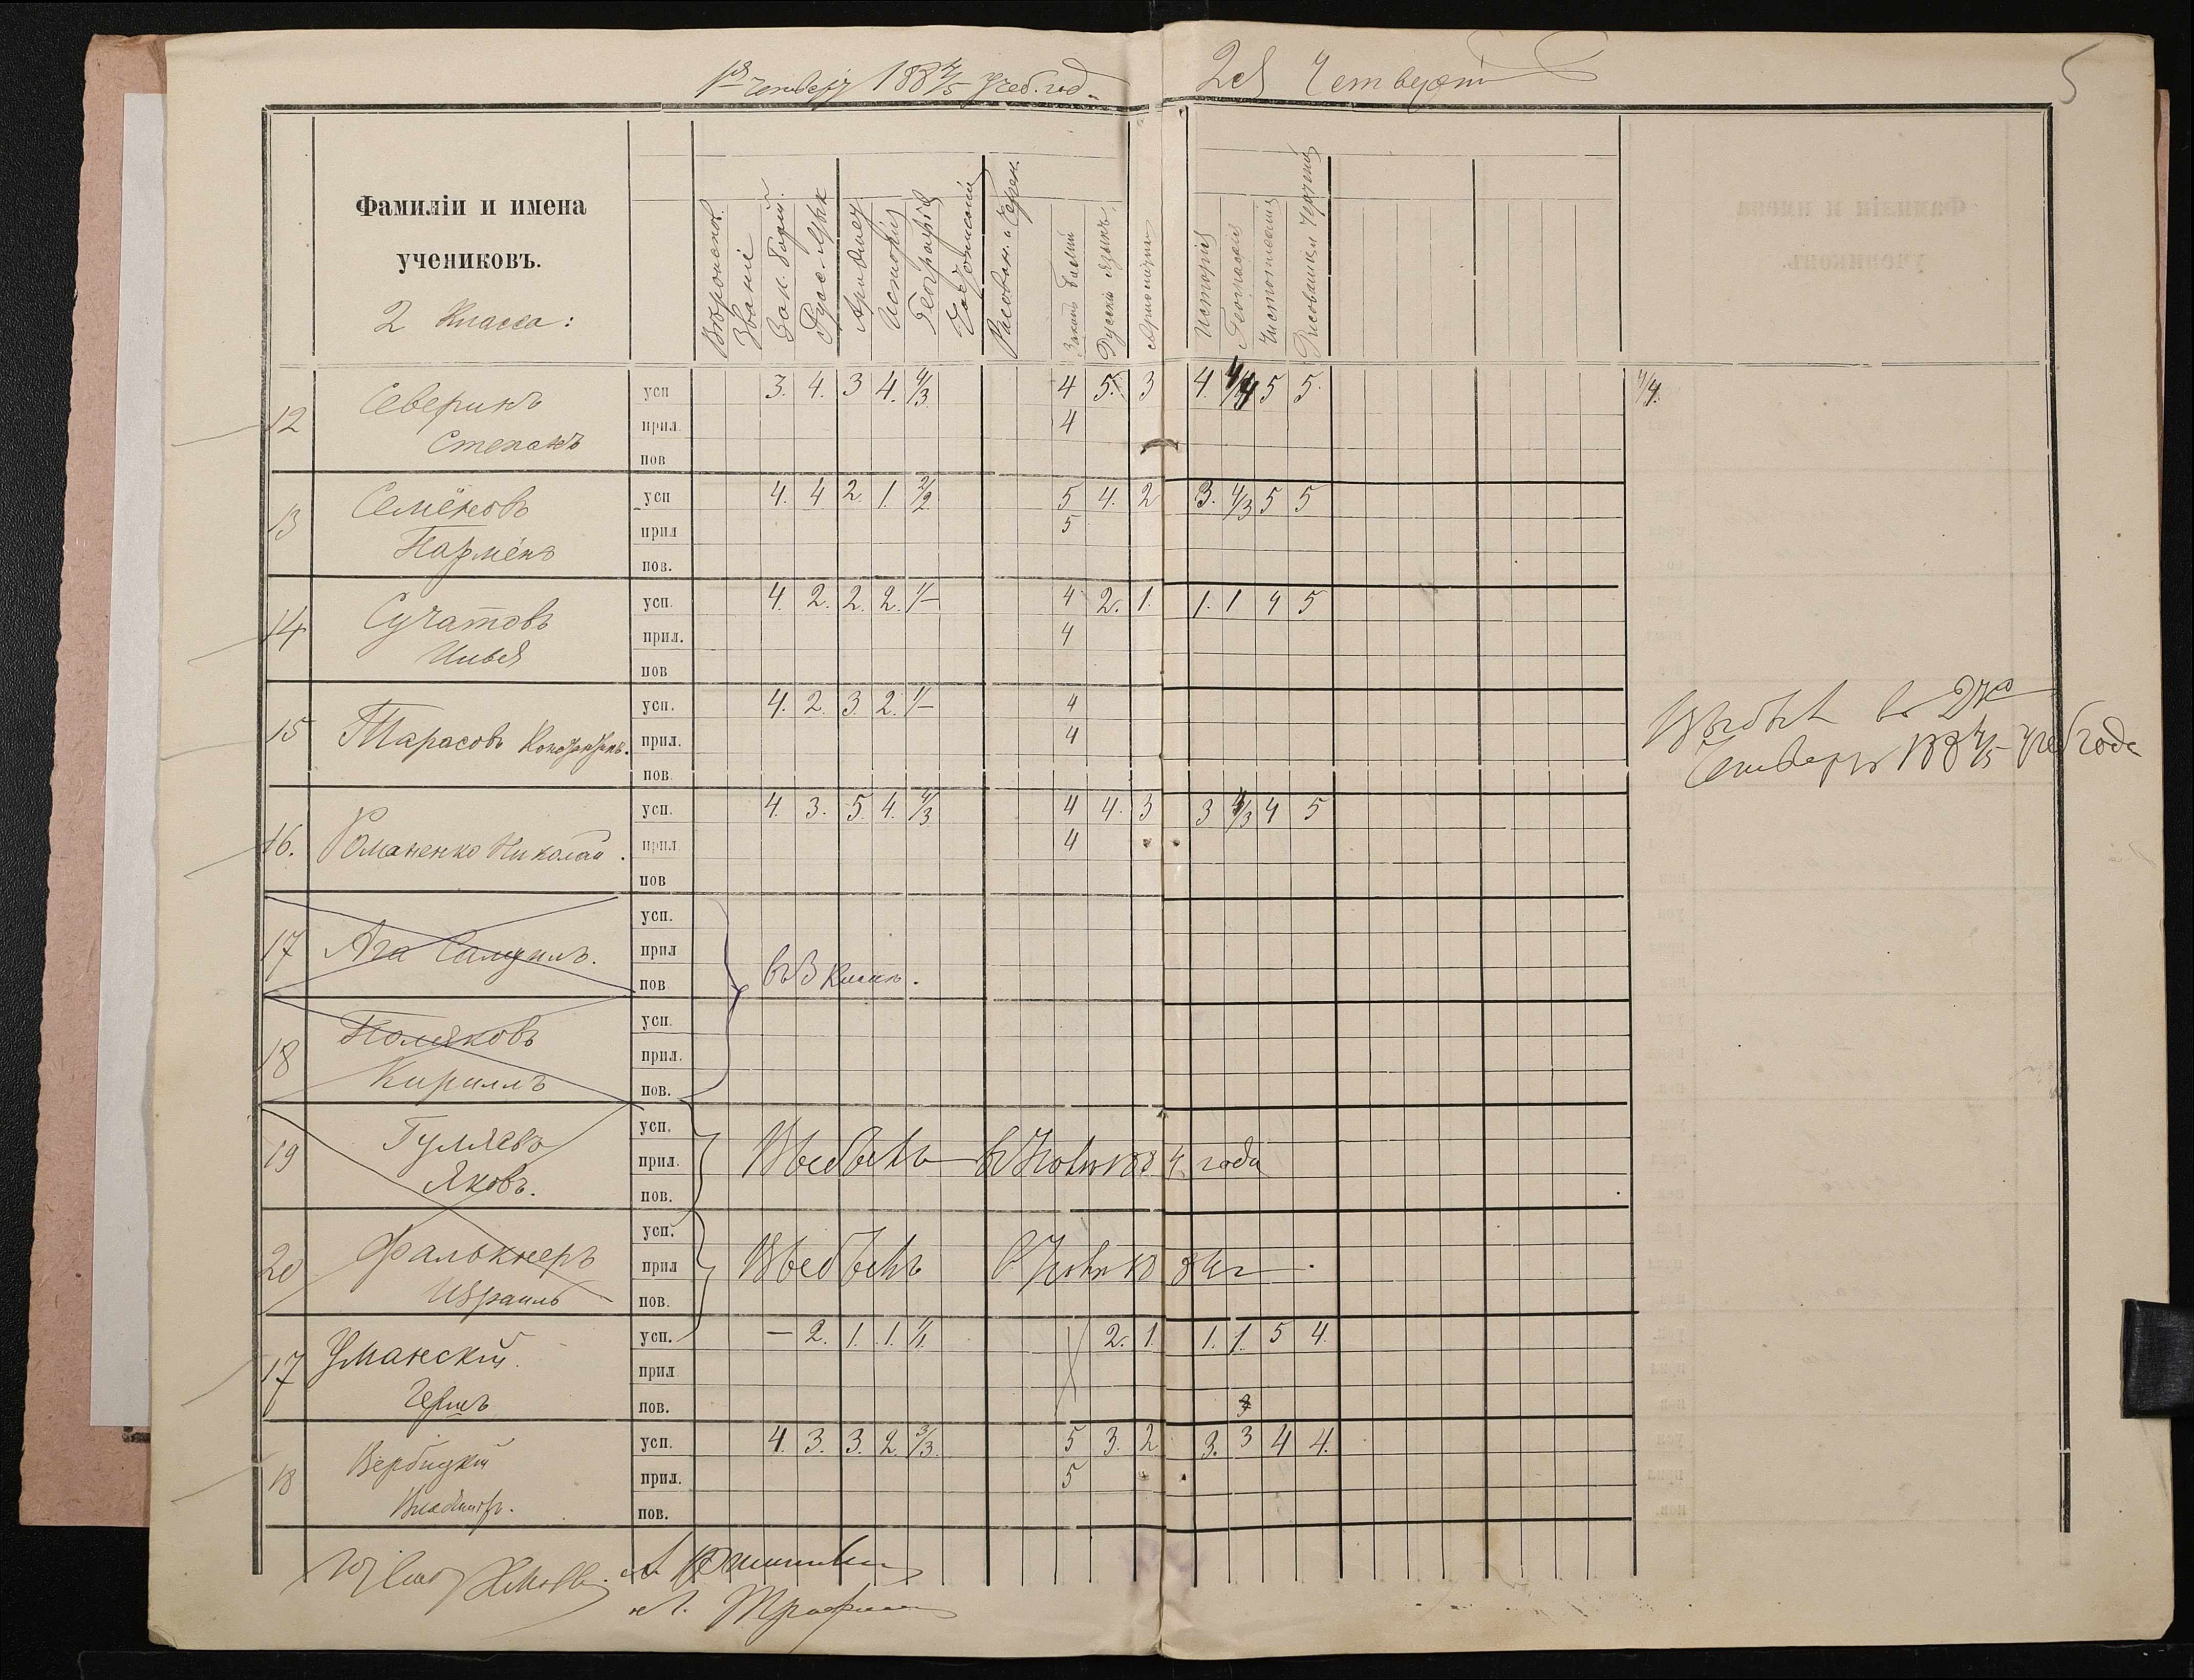 1я четверть 1884/5 учеб. год.
2я Четверть
5
Фамиліи и имена
учениковъ.
2 Класса:
Вѣроисповѣд.
Званіе
Зак. Божій.
Рус. Язык
Арифмет
Исторія
Географія
Чистописаніе
Рисован. и Черчен.
Законъ Божій
Русскій Языкъ
Арифметика
Исторія
Географія
Чистописаніе
Рисованіе и Черченіе
12 Северинъ усп 3. 4. 3 4. 4/3 4 5. 3 4. 4/4 5 5. 4/4.
Степанъ прил. 4
пов
13 Семёновъ усп 4. 4 2. 1. 2/2 5 4. 2 3. 4/3 5 5
Парменъ прил 5
пов.
14 Сучатовъ усп. 4. 2. 2. 2. 1/– 4 2. 1. 1. 1 4 5
Илья прил. 4
пов
15 Тарасовъ усп. 4. 2. 3. 2. 1/– 4
прил. 4
пов.
Выбылъ во 2й
четверти 1884/5 учеб года
16. Романенко Николай. усп. 4. 3. 5. 4. 4/3 4 4. 3 3 4/3 4 5
прил 4
пов
17 Ага усп.
прил
пов
въ 3 классѣ.
18 Поляковъ усп.
Кириллъ прил.
пов.
19 Гуляевъ усп.
Яковъ. прил. Выбылъ 4 года
пов.
20 Фалькнеръ усп.
Израиль прил Выбылъ
пов.
17 Уманскій. усп. – 2. 1. 1. 1/1 2. 1. 1. 1. 5 4.
Гершъ прил
пов. 3
18 Вербицкій усп. 4. 3. 3. 2. 3/3. 5 3. 2 3. 3 4 4.
Владиміръ. прил. 5
пов.